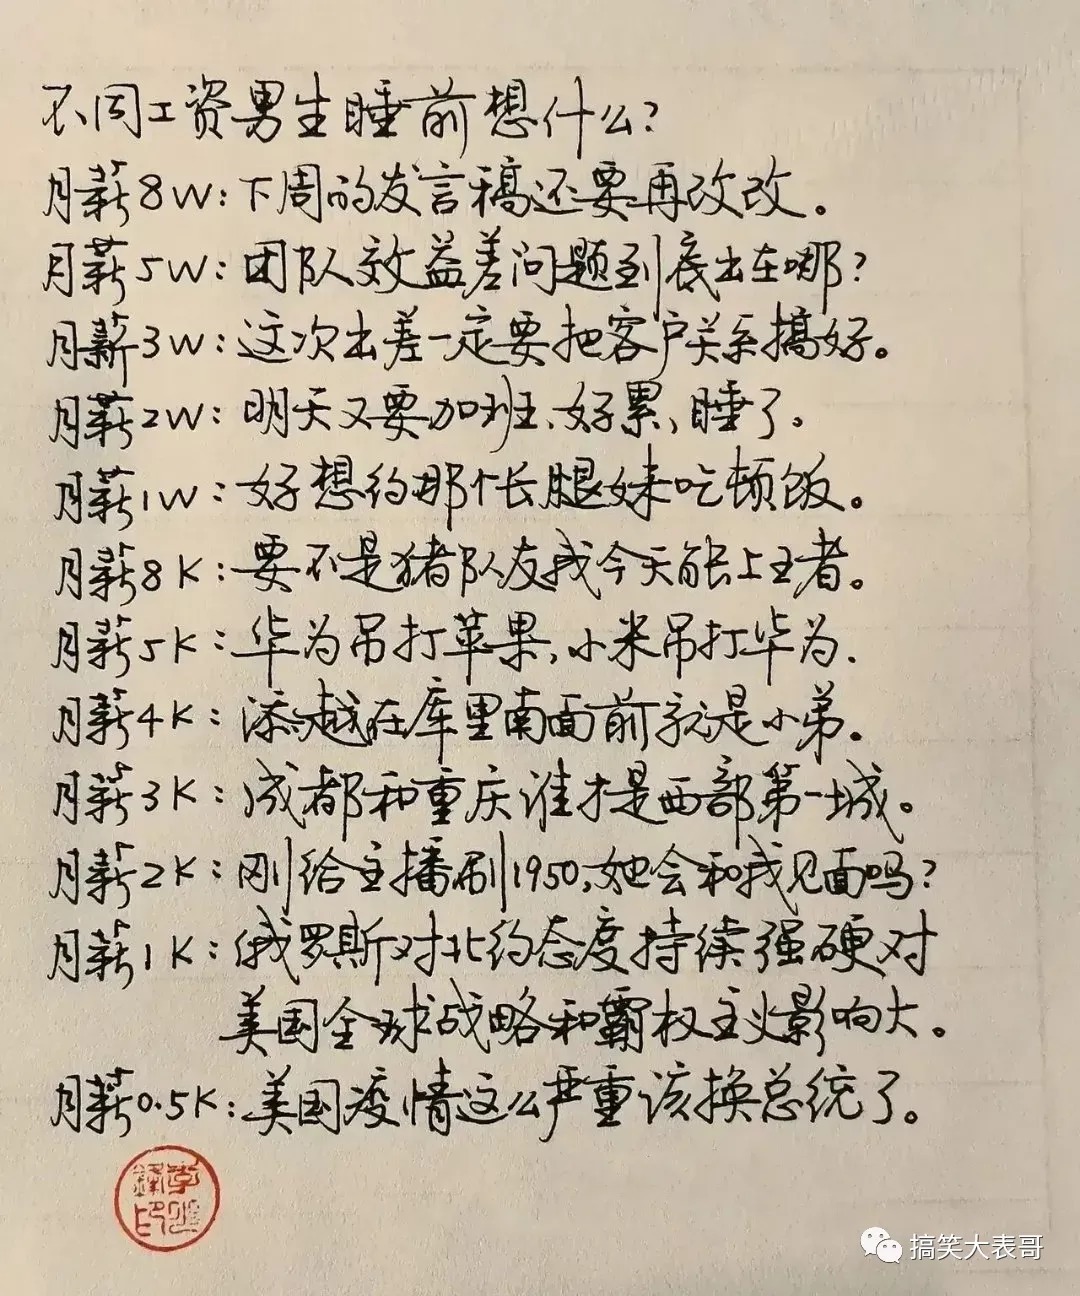 不同工资男生睡前想什么?
月薪8W:下周的发言稿还要再改改。
月薪5W:团队效益差问题到底出在哪?
月薪3W:这次出差一定要把客户关系搞好。
月薪2W:明天又要加班、好累、睡了。
月薪1W:好想约那个长腿妹吃顿饭。
月薪8K:要不是猪队友我今天能上王者。
月薪5K:华为吊打苹果,小米吊打华为.
月薪4K:添越在库里南面前就是小弟。
月薪3K:成都和重庆谁才是西部第一城。
月薪2K:刚给主播刷1950,她会和我见面吗?
月薪1K:俄罗斯对北约态度持续强硬对
美国全球战略和霸权主义影响大。
月薪0.5K:美国疫情这么严重该换总统了。
搞笑大表哥